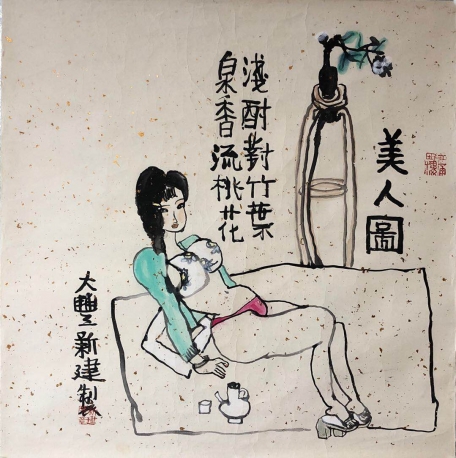 美人圖
淺酎對竹葉
泉香流桃花
大豐新建製